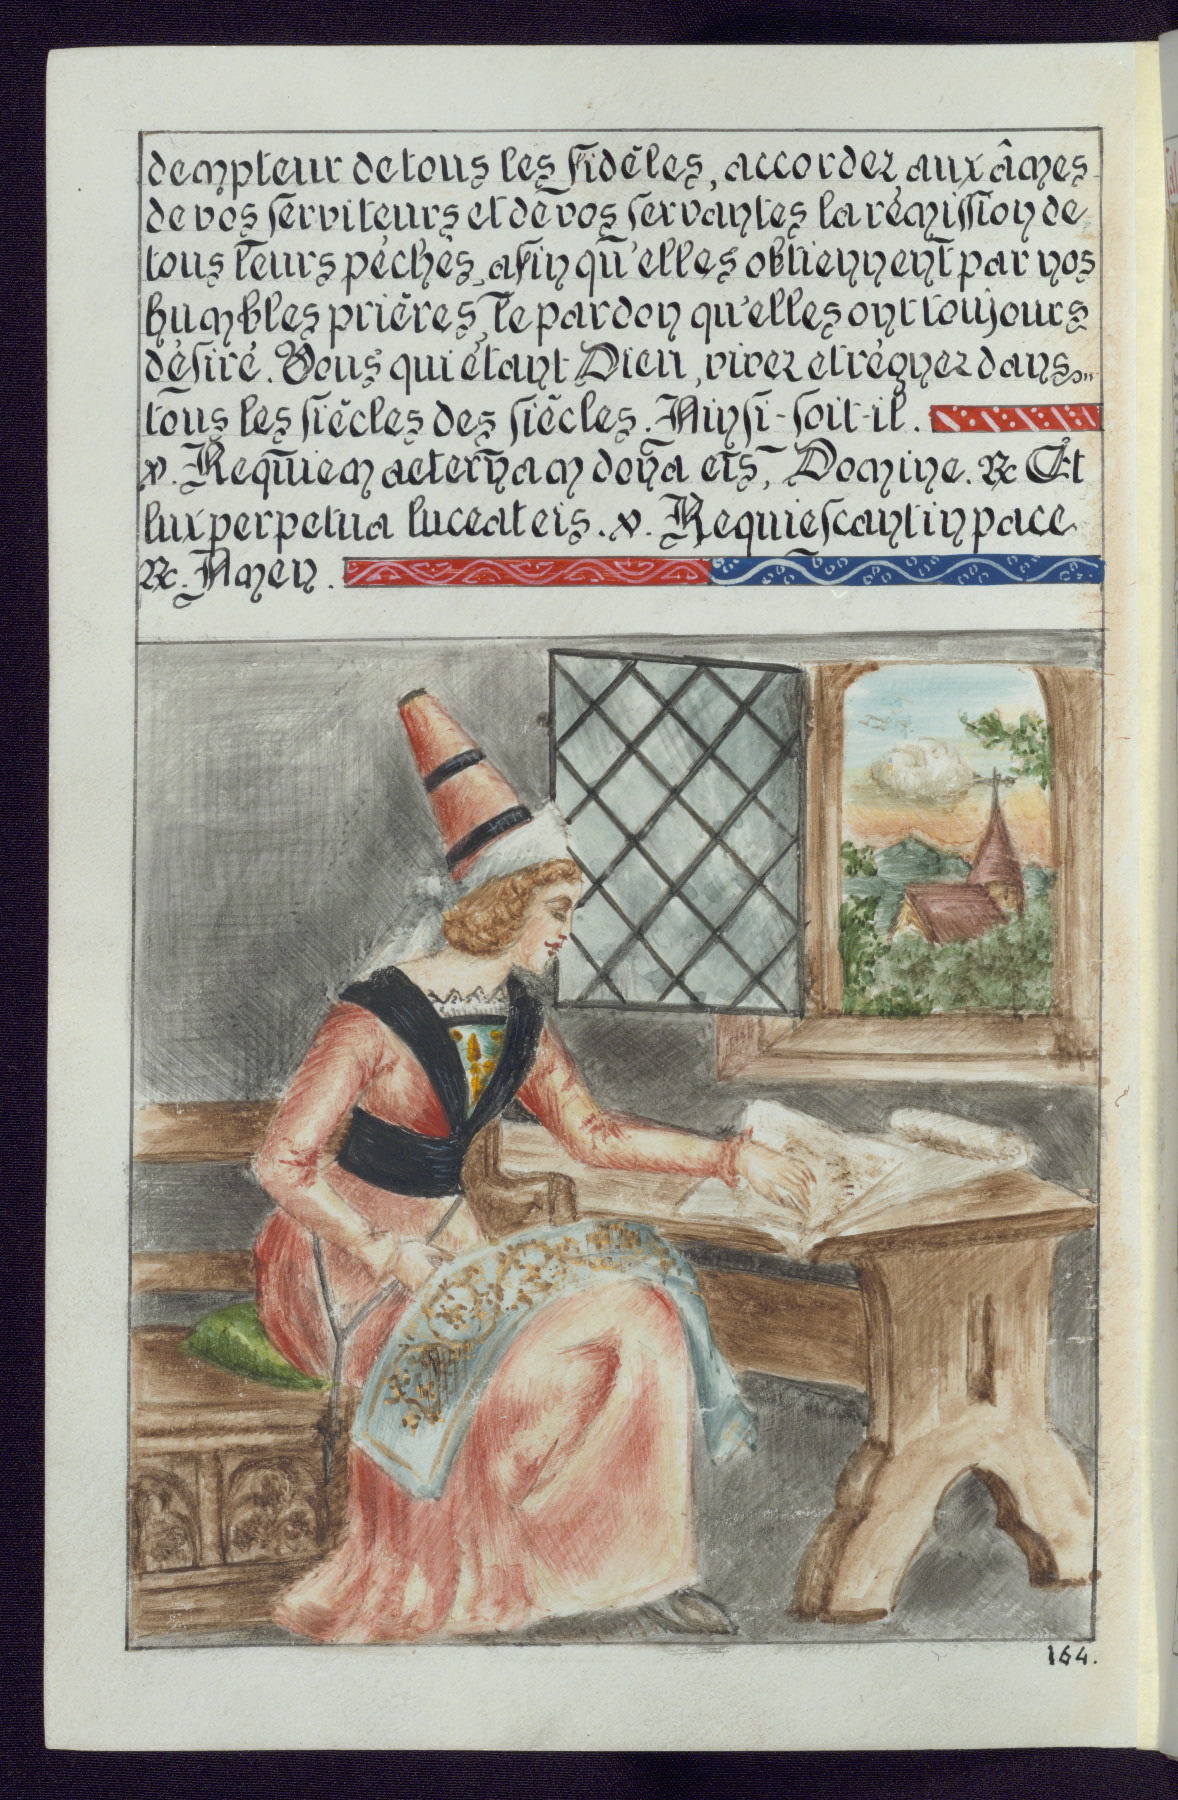 dempteur de tous les fidèles, accordez aux âmes
de vos serviteurs et de vos servantes la rémission de
tous leurs péchés, afin qu'elles obtiennent par nos
humbles prières, le pardon qu'elles ont toujours
désiré. Vous qui étant Dieu, vivez et régnez dans
tous les siècles des siècles. Ainsi-soit-il.
v. Requiem aeternam dona eis, Domine. R. Et
lux perpetua luceat eis. v. Requiescant in pace
R. Amen.
164.